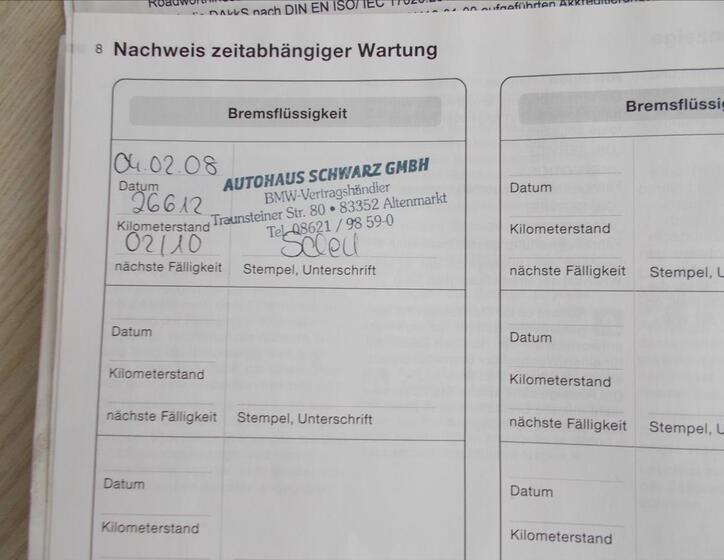 nach DIN EN ISO/ IEC
aufgeführten
8 Nachweis zeitabhängiger Wartung
Bremsflüssigkeit
04.02.08
Datum
26612
Kilometerstand
02/10
nächste Fälligkeit
AUTOHAUS SCHWARZ GMBH
BMW-Vertragshändler
Traunsteiner Str. 80 • 83352 Altenmarkt
Tel. 08621 / 98 59-0
Stempel, Unterschrift
Datum
Kilometerstand
nächste Fälligkeit
Stempel, Unterschrift
Datum
Kilometerstand
Bremsflüssig
Datum
Kilometerstand
nächste Fälligkeit
Stempel, U
Datum
Kilometerstand
nächste Fälligkeit
Stempel, U
Datum
Kilometerstand